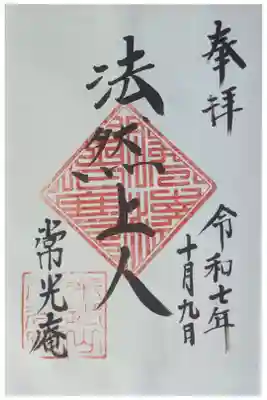 奉拝
令和七年
十月九日
法然上人
常光庵